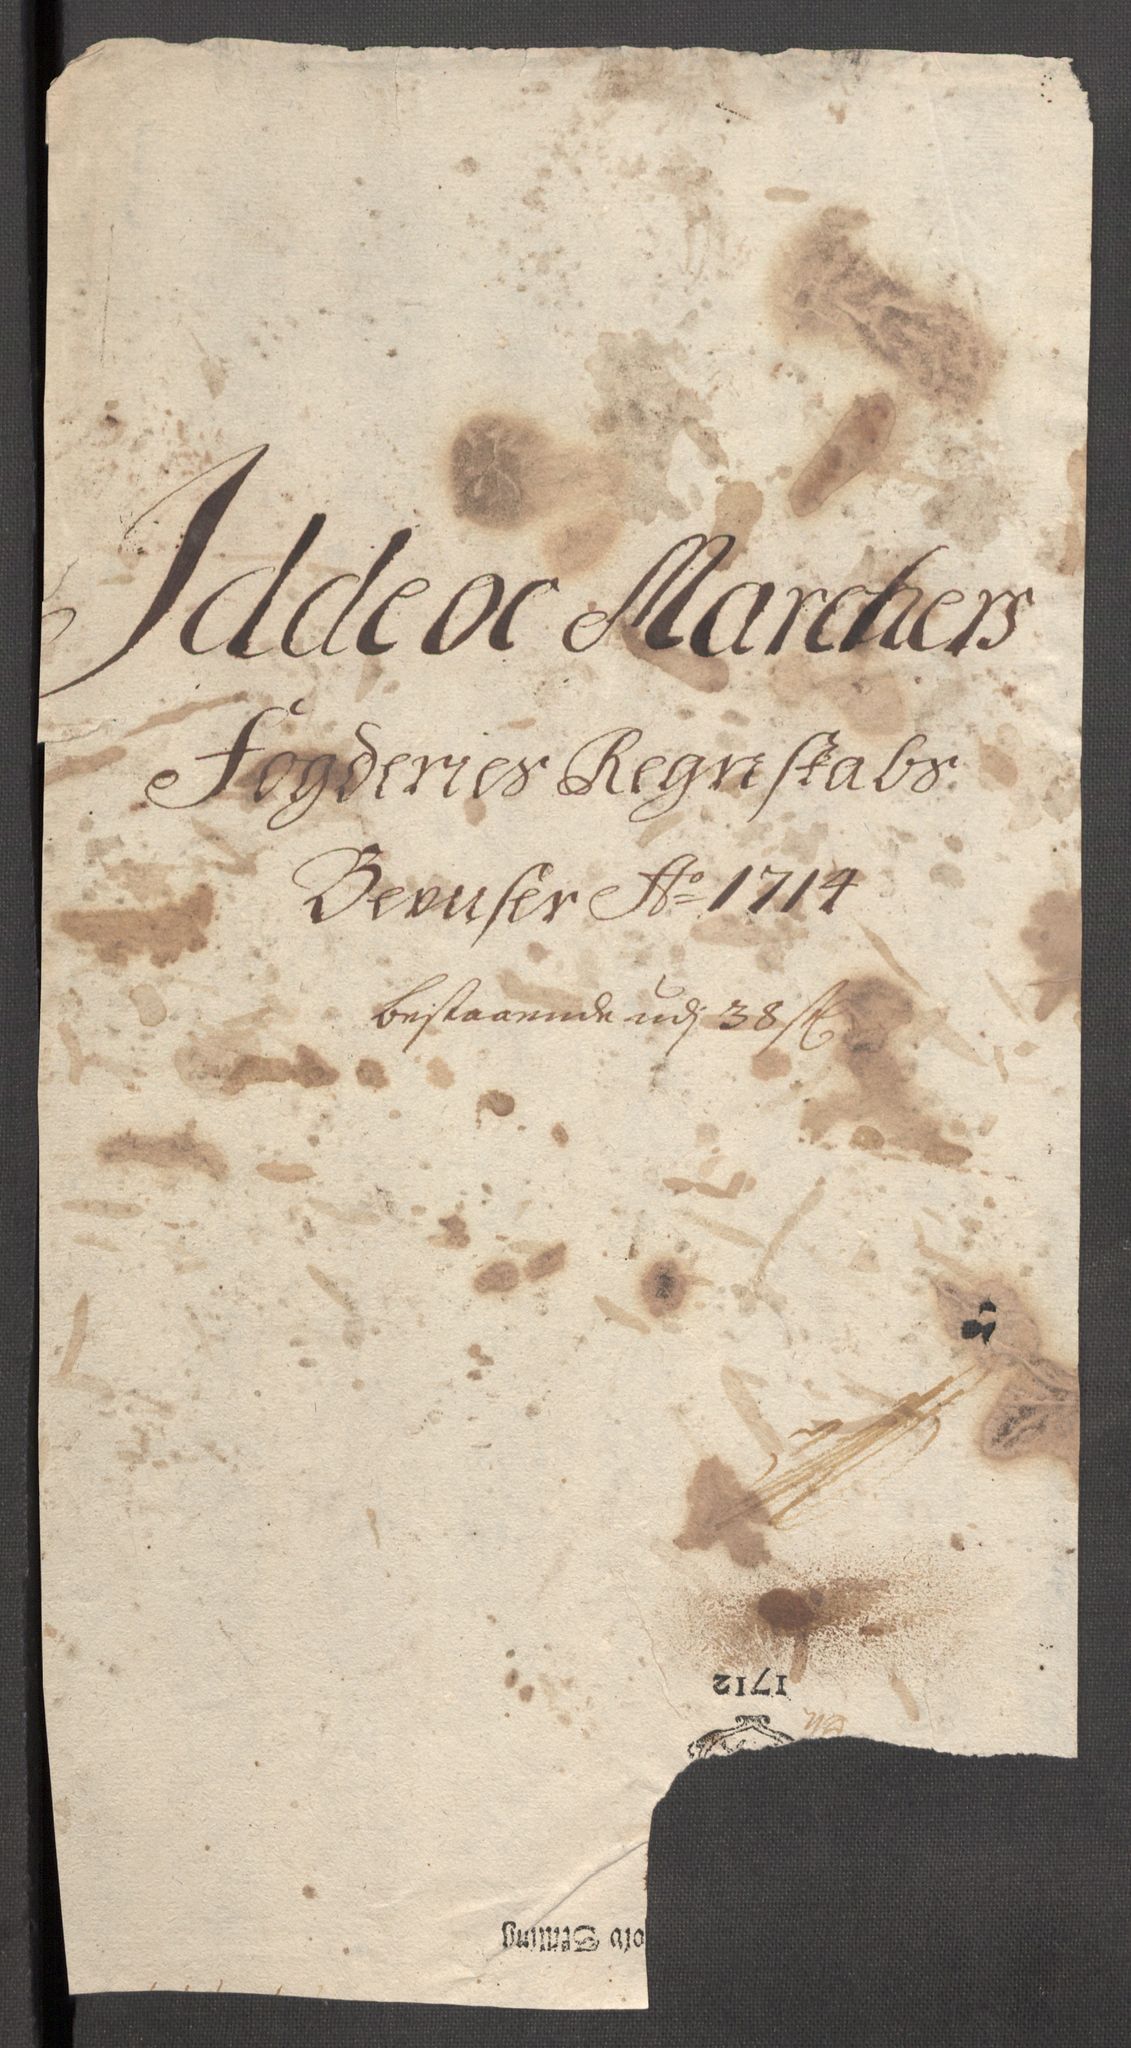 Idde oc Marchers
Fogderies Regnskabs
Beviiser Ao 1714
bestaaende udj 38 st
1712
olv Skilling